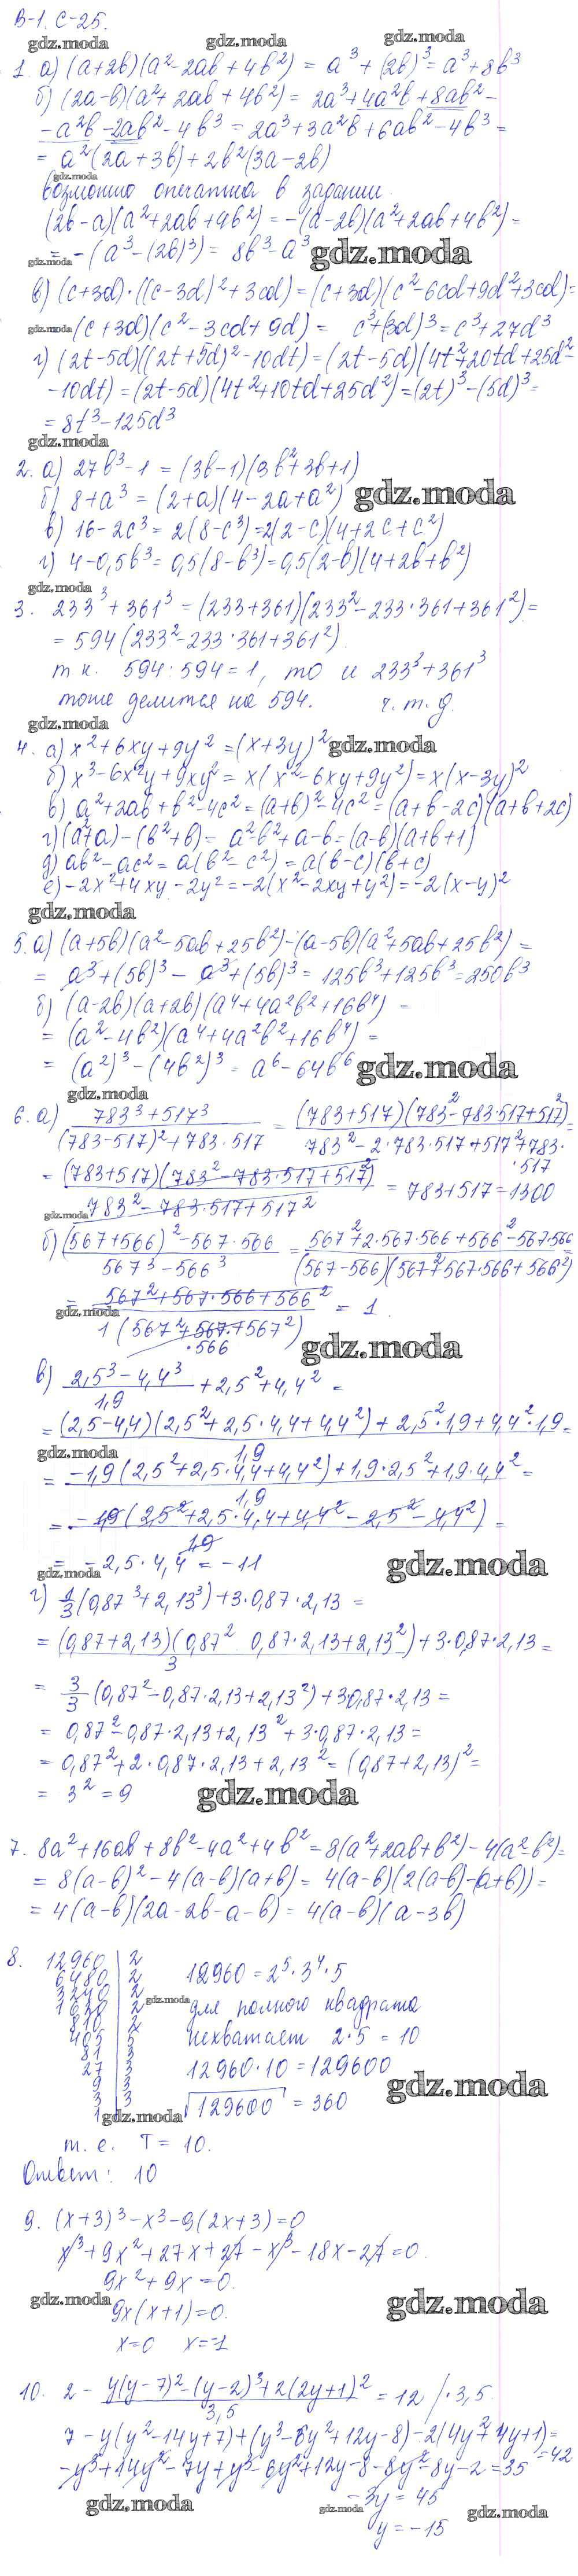 В-1. С-25.
gdz.moda gdz.moda gdz.moda
1. а) (a+2b)(a²-2ab+4b²) = a³+(2b)³= a³+8b³
б) (2a-b)(a²+2ab+4b²)= 2a³+4a²b+8ab²-
-a²b-2ab²-4b³= 2a³+3a²b+6ab²-4b³=
= a²(2a+3b)+2b²(3a-2b)
gdz.moda
возможно опечатка в задании.
(2b-a)(a²+2ab+4b²)=-(a-2b)(a²+2ab+4b²)=
= -(a³-(2b)³)= 8b³-a³
gdz.moda gdz.moda
в) (c+3d)·((c-3d)²+3cd)=(c+3d)(c²-6cd+9d²+3cd)=
gdz.moda (c+3d)(c²-3cd+9d)= c³+(3d)³=c³+27d³
г) (2t-5d)((2t+5d)²-10dt)=(2t-5d)(4t²+20td+25d²-
-10dt)=(2t-5d)(4t²+10td+25d²)=(2t)³-(5d)³=
= 8t³-125d³
gdz.moda
2. а) 27b³-1 = (3b-1)(3b²+3b+1)
б) 8+a³=(2+a)(4-2a+a²) gdz.moda
в) 16-2c³= 2(8-c³)=2(2-c)(4+2c+c²)
г) 4-0,5b³= 0,5(8-b³)=0,5(2-b)(4+2b+b²)
gdz.moda
3. 233³+361³=(233+361)(233²-233·361+361²)=
= 594(233²-233·361+361²).
т.к. 594:594=1, то и 233³+361³
тоже делится на 594. ч.т.д.
gdz.moda
4. а) x²+6xy+9y²=(x+3y)² gdz.moda
б) x³-6x²y+9xy²= x(x²-6xy+9y²)=x(x-3y)²
в) a²+2ab+b²-4c²=(a+b)²-4c²=(a+b-2c)(a+b+2c)
г) (a²+a)-(b²+b)= a²b²+a-b=(a-b)(a+b+1)
д) ab²-ac²= a(b²-c²)=a(b-c)(b+c)
е) -2x²+4xy-2y²=-2(x²-2xy+y²)=-2(x-y)²
gdz.moda
5. а) (a+5b)(a²-5ab+25b²)-(a-5b)(a²+5ab+25b²)=
= a³+(5b)³-a³+(5b)³= 125b³+125b³=250b³
б) (a-2b)(a+2b)(a⁴+4a²b²+16b⁴) =
= (a²-4b²)(a⁴+4a²b²+16b⁴)=
= (a²)³-(4b²)³= a⁶-64b⁶ gdz.moda
gdz.moda
6. а) 783³+517³ / (783-517)²+783·517 = (783+517)(783²-783·517+517²) / 783²-2·783·517+517²+783·517 =
= (783+517)(783²-783·517+517²) / 783²-783·517+517² = 783+517=1300
gdz.moda
б) (567+566)²-567·566 / 567³-566³ = 567²+2·567·566+566²-567·566 / (567-566)(567²+567·566+566²) =
= 567²+567·566+566² / 1(567²+567·566+567²) = 1.
gdz.moda gdz.moda
в) 2,5³-4,4³ / 1,9 + 2,5²+4,4² =
= (2,5-4,4)(2,5²+2,5·4,4+4,4²)+2,5²·1,9+4,4²·1,9 / 1,9 =
gdz.moda
= -1,9(2,5²+2,5·4,4+4,4²)+1,9·2,5²+1,9·4,4² / 1,9 =
= -1,9(2,5²+2,5·4,4+4,4²-2,5²-4,4²) / 1,9 =
gdz.moda = -2,5·4,4 = -11 gdz.moda
г) 1/3(0,87³+2,13³)+3·0,87·2,13 =
= (0,87+2,13)(0,87² 0,87·2,13+2,13²) / 3 +3·0,87·2,13=
= 3/3(0,87²-0,87·2,13+2,13²)+3·0,87·2,13=
= 0,87²-0,87·2,13+2,13²+3·0,87·2,13=
= 0,87²+2·0,87·2,13+2,13²=(0,87+2,13)²=
= 3²=9 gdz.moda
7. 8a²+16ab+8b²-4a²+4b²=8(a²+2ab+b²)-4(a²-b²)=
= 8(a-b)²-4(a-b)(a+b)= 4(a-b)(2(a-b)-(a+b))=
= 4(a-b)(2a-2b-a-b)=4(a-b)(a-3b)
8. 12960 | 2 12960=2⁵·3⁴·5
6480 | 2
3240 | 2 gdz.moda
1620 | 2 для полного квадрата
810 | 2
405 | 5 нехватает 2·5=10
81 | 3
27 | 3 12960·10=129600
9 | 3 gdz.moda
3 | 3 √129600 = 360
1 gdz.moda
т.е. T=10.
Ответ: 10
9. (x+3)³-x³-9(2x+3)=0
x³+9x²+27x+27-x³-18x-27=0.
9x²+9x=0.
gdz.moda 9x(x+1)=0. gdz.moda
x=0 x=-1
10. 2 - y(y-7)²-(y-2)³+2(2y+1)² / 3,5 = 12 / ·3,5.
7-y(y²-14y+7)+(y³-6y²+12y-8)-2(4y²+4y+1)=
=42
-y³+14y²-7y+y³-6y²+12y-8-8y²-8y-2=35
gdz.moda -3y=45
gdz.moda gdz.moda
y=-15